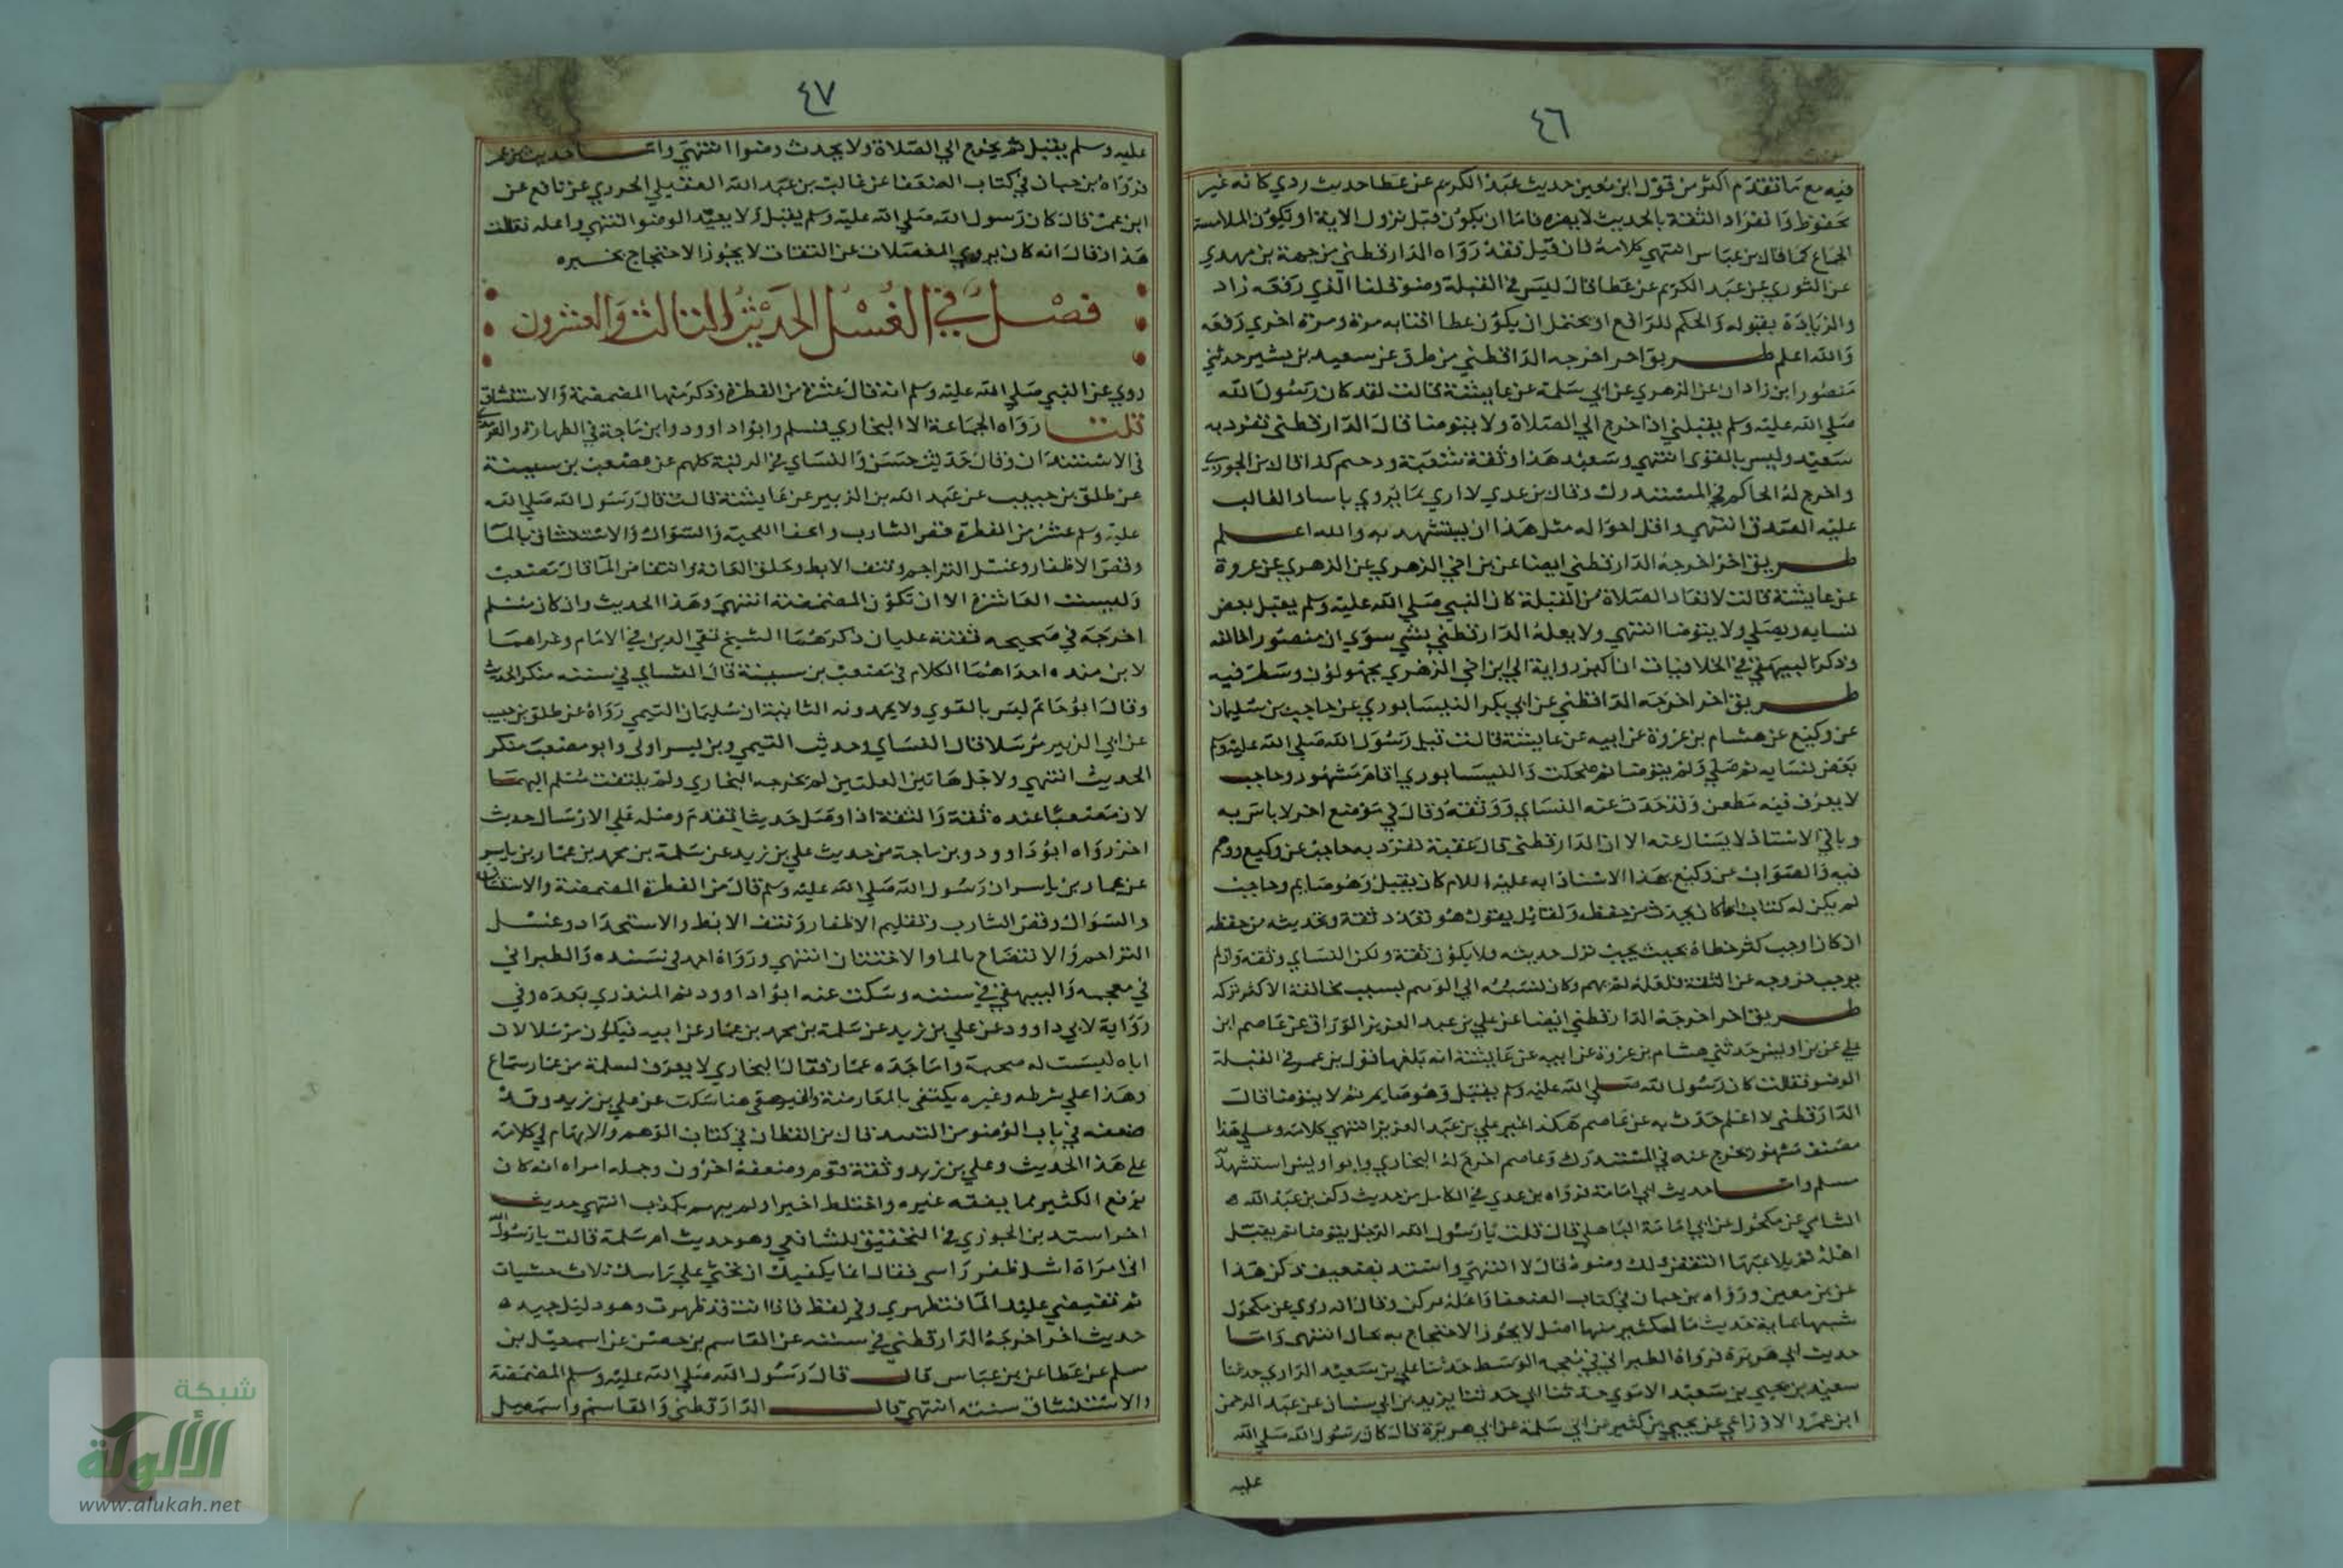 ٤٦
فيه مع ما تقدم أكثر من قول ابن معين حديث عبد الكريم عن عطا حديث ردي كانه غير
محفوظ وانفراد الثقة بالحديث لا يضره فاما ان يكون قبل نزول الاية او تكون الملامسة
الجماع كما قال بن عباس انتهي كلامه فان قيل فقد رواه الدارقطني من جهة بن مهدي
عن الثوري عن عبد الكريم عن عطا قال ليس في القبلة وضو قلنا الذي رفعه زاد
والزيادة مقبوله والحكم للرافع او يحتمل ان يكون عطا افتا به مرة ومرة اخري رفعه
والله اعلم طريق اخر اخرجه الدارقطني من طرق عن سعيد بن بشير حدثني
منصور ابن زادان عن الزهري عن ابي سلمة عن عايشة قالت لقد كان رسول الله
صلي الله عليه وسلم يقبلني اذا خرج الي الصلاة ولا يتوضا قال الدارقطني تفرد به
سعيد وليس بالقوي انتهي وسعيد هذا وثقه شعبة ودحيم كذا قال بن الجوزي
واخرج له الحاكم في المستدرك وقال بن عدي لا اري بما يروي باسا والغالب
عليه الصدق انتهي واقل احواله مثل هذا ان يستشهد به والله اعلم
طريق اخر اخرجه الدارقطني ايضا عن بن اخي الزهري عن الزهري عن عروة
عن عايشة قالت لا تعاد الصلاة من القبلة كان النبي صلي الله عليه وسلم يقبل بعض
نسايه ويصلي ولا يتوضا انتهي ولا يعله الدارقطني بشي سوي ان منصورا خالفه
وذكر البيهقي في الخلافيات ان اكثر رواية الي ابن اخي الزهري مجهولون وسطر فيه
طريق اخر اخرجه الدارقطني عن ابي بكر النيسابوري عن حاجب بن سليمان
عن وكيع عن هشام بن عروة عن ابيه عن عايشة قالت قبل رسول الله صلي الله عليه وسلم
بعض نسايه ثم صلي ولم يتوضا ثم ضحكت والنيسابوري امام مشهور وحاجب
لا يعرف فيه مطعن وقد حدث عنه النساي ووثقه وقال في موضع اخر لا باس به
وباقي الاسناد لا يسال عنه الا ان الدارقطني قال عقبه تفرد به حاجب عن وكيع ووهم
فيه والصواب عن وكيع بهذا الاسناد انه عليه السلام كان يقبل وهو صايم وحاجب
لم يكن له كتاب انما كان يحدث من حفظه ولقايل يقول هو تفرد ثقة وتحديثه من حفظه
ان كان اوجب كثر خطاه بحيث يجب ترك حديثه فلا يكون ثقة ولكن النساي وثقه وان لم
يوجب خروجه عن الثقة فلعله لم يهم وكان نسبته الي الوهم بسبب مخالفة الاكثر تركه
طريق اخر اخرجه الدارقطني ايضا عن علي بن عبد العزيز الوراق عن عاصم ابن
علي عن بن اويس حدثني هشام بن عروة عن ابيه عن عايشة انه بلغها قول بن عمر في القبلة
الوضو فقالت كان رسول الله صلي الله عليه وسلم يقبل وهو صايم ثم لا يتوضا قال
الدارقطني لا اعلم حدث به عن عاصم هكذا غير علي بن عبد العزيز انتهي كلامه وعلي هذا
مصنف مشهور مخرج عنه في المستدرك وعاصم اخرج له البخاري وابو اويس استشهد به
مسلم واما حديث ابي امامة فرواه بن عدي في الكامل من حديث ركن بن عبد الله
الشامي عن مكحول عن ابي امامة الباهلي قال قلت يا رسول الله الرجل يتوضا ثم يقبل
اهله ثم يلاعبها انتقض ذلك وضوه قال لا انتهي واسند تضعيف ركن هذا
عن بن معين ورواه بن حبان في كتاب الضعفا واعله بركن وقال انه روي عن مكحول
شبيها بماية حديث ما لكثير منها اصل لا يجوز الاحتجاج به بحال انتهي واما
حديث ابي هريرة فرواه الطبراني في معجمه الوسط حدثنا علي بن سعيد الرازي حدثنا
سعيد بن يحيي بن سعيد الاموي حدثنا ابي حدثنا يزيد بن ابي سنان عن عبد الرحمن
ابن عمرو الاوزاعي عن يحيي بن كثير عن ابي سلمة عن ابي هريرة قال كان رسول الله صلي الله
عليه
٤٧
عليه وسلم يقبل ثم يخرج الي الصلاة ولا يحدث وضوا انتهي واما حديث بن عمر
فرواه بن حبان في كتاب الضعفا عن غالب بن عبيد الله العقيلي الجزري عن نافع عن
ابن عمر قال كان رسول الله صلي الله عليه وسلم يقبل ولا يعيد الوضو انتهي واعله بغالب
هذا وقال انه كان يروي المعضلات عن الثقات لا يجوز الاحتجاج بخبره
فصل في الغسل الحديث الثالث والعشرون
روي عن النبي صلي الله عليه وسلم انه قال عشرة من الفطرة وذكر منها المضمضة والاستنشاق
قلت رواه الجماعة الا البخاري فمسلم وابو داوود وابن ماجة في الطهارة والترمذي
في الاستئذان وقال حديث حسن والنساي في الزينة كلهم عن مصعب بن شيبة
عن طلق بن حبيب عن عبد الله بن الزبير عن عايشة قالت قال رسول الله صلي الله
عليه وسلم عشر من الفطرة قص الشارب واعفا اللحية والسواك والاستنشاق بالما
وقص الاظفار وغسل البراجم ونتف الابط وحلق العانة وانتقاص الما قال مصعب
ونسيت العاشرة الا ان تكون المضمضة انتهي وهذا الحديث وان كان مسلم
اخرجه في صحيحه ففيه علتان ذكرهما الشيخ تقي الدين في الامام وعزاهما
لابن منده احداهما الكلام في مصعب بن شيبة قال النساي في سننه منكر الحديث
وقال ابو حاتم ليس بالقوي ولا يحمدونه الثانية ان سليمان التيمي رواه عن طلق بن حبيب
عن ابي الزبير مرسلا قال النساي وحديث التيمي وبن بسر اولي وابو مصعب منكر
الحديث انتهي ولاجل هاتين العلتين لم يخرجه البخاري ولم يلتفت مسلم اليهما
لان مصعبا عنده ثقة والثقة اذا وصل حديثا تقدم وصله علي الارسال حديث
اخر رواه ابو داوود وبن ماجة من حديث علي بن زيد عن سلمة بن محمد بن عمار بن ياسر
عن عمار بن ياسر ان رسول الله صلي الله عليه وسلم قال من الفطرة المضمضة والاستنشاق
والسواك وقص الشارب وتقليم الاظفار ونتف الابط والاستحداد وغسل
البراجم والانتضاح بالما والاختتان انتهي ورواه احمد في مسنده والطبراني
في معجمه والبيهقي في سننه وسكت عنه ابو داوود ثم المنذري بعده وفي
رواية لابي داوود عن علي بن زيد عن سلمة بن محمد بن عمار عن ابيه فيكون مرسلا لان
اباه ليست له صحبة واما جده عمار فقال البخاري لا يعرف لسلمة من عمار سماع
وهذا علي شرطه وغيره يكتفي بالمعاصرة والبيهقي هنا سكت عن علي بن زيد وقد
ضعفه في باب الوضو من النبيذ قال بن القطان في كتاب الوهم والايهام في كلامه
علي هذا الحديث وعلي بن زيد وثقه قوم وضعفه اخرون وجملة امره انه كان
يرفع الكثير مما يقفه غيره واختلط اخيرا ولم يتهم بكذب انتهي حديث
اخر استدل بن الجوزي في التحقيق للشافعي وهو حديث ام سلمة قالت يا رسول الله
اني امراة اشد ظفر راسي فقال انما يكفيك ان تحثي علي راسك ثلاث حثيات
ثم تفيضي عليك الما فتطهري وفي لفظ فاذا انت قد طهرت وهو دليل جيد
حديث اخر اخرجه الدارقطني في سننه عن القاسم بن غصن عن اسمعيل بن
مسلم عن عطا عن بن عباس قال قال رسول الله صلي الله عليه وسلم المضمضة
والاستنشاق سنة انتهي قال الدارقطني والقاسم واسمعيل
شبكة
الألوكة
www.alukah.net